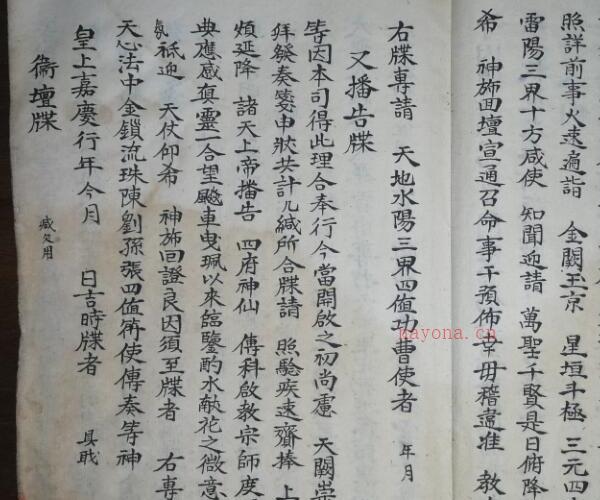 照詳前事火速遍詣　金闕玉京　星垣斗極　三元四
雷陽三界十方咸使　知聞迎請　萬聖千賢是日俯降
希　神斾回壇宣通召命事干預佈幸毋稽違准　教
年月
右牒專請　天地水陽三界四值功曹使者
又播告牒
皆因本司得此理合奉行今當開啟之初尚慮　天闕崇
拜發奏箋申狀共計几緘所合牒請　照驗疾速齎捧　上
煩延降　諸天上帝播告　四府神仙　傳科啟教宗師度
典應感真靈一合望飈車曳珮以來臨鑒酌水献花之微意
祗迎　天仗仰希　神斾回證良因須至牒者　右專
天心法中金鎖流珠陳劉孫張四值符使傳奏等神
皇上嘉慶行年今月　日吉時牒者　具戝
衛壇牒
nayona.cn